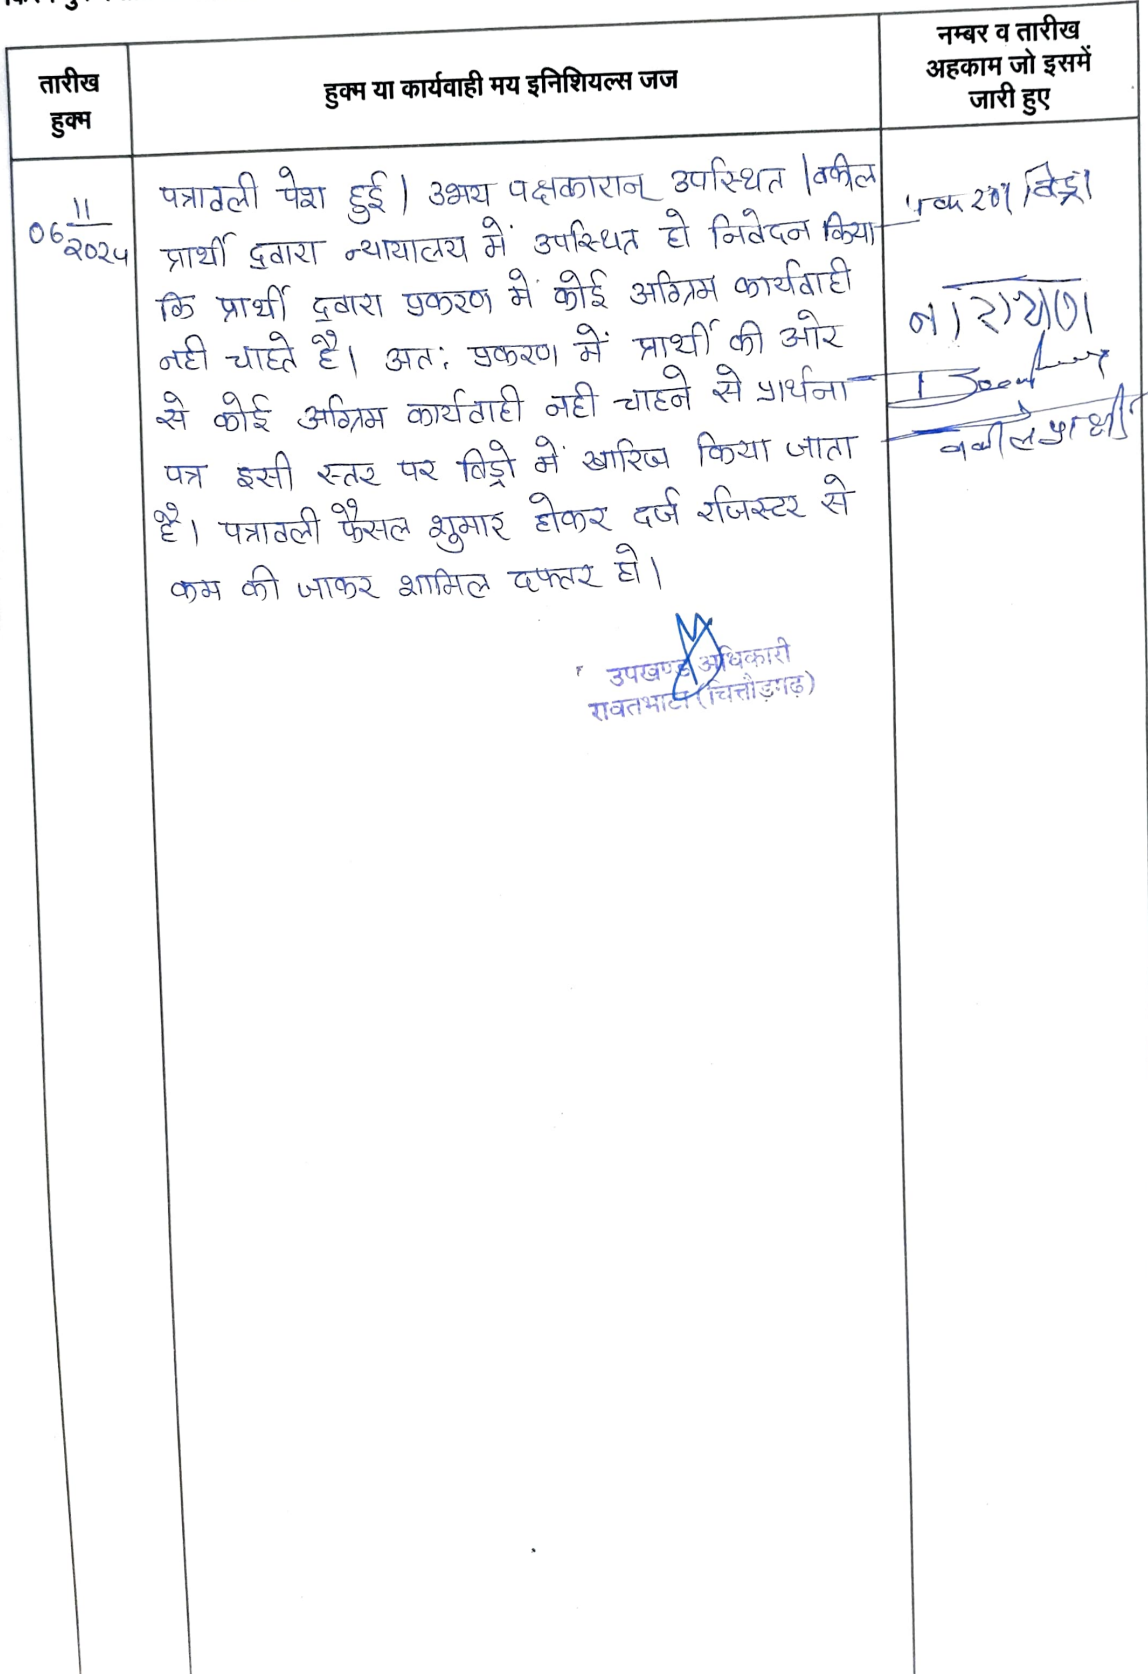 तारीख
हुक्म
हुक्म या कार्यवाही मय इनिशियल्स जज
नम्बर व तारीख
अहकाम जो इसमें
जारी हुए
06 11
2024
पत्रावली पेश हुई। उभय पक्षकारान् उपस्थित। वकील
प्रार्थी द्वारा न्यायालय में उपस्थित हो निवेदन किया
कि प्रार्थी द्वारा प्रकरण में कोई अग्रिम कार्यवाही
नही चाहते है। अतः प्रकरण में प्रार्थी की ओर
से कोई अग्रिम कार्यवाही नही चाहने से प्रार्थना
पत्र इसी स्तर पर विड्रो में खारिज किया जाता
है। पत्रावली फैसल शुमार होकर दर्ज रजिस्टर से
कम की जाकर शामिल दफ्तर हो।
उपखण्ड अधिकारी
रावतभाटा (चित्तौड़गढ़)
विड्रो
नारायण
वकील प्रार्थी